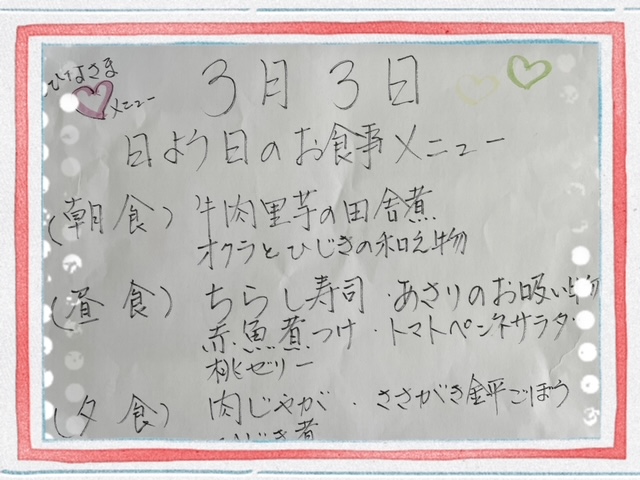 ひなさま
メニュー
3月3日
日よう日のお食事メニュー
(朝食) 牛肉里芋の田舎煮
オクラとひじきの和え物
(昼食) ちらし寿司・あさりのお吸い物
赤魚煮つけ・トマトペンネサラダ・
桃ゼリー
(夕食) 肉じゃが・ささがき金平ごぼう